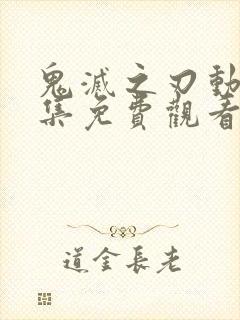 鬼滅之刃動
集免費觀看
道金長老